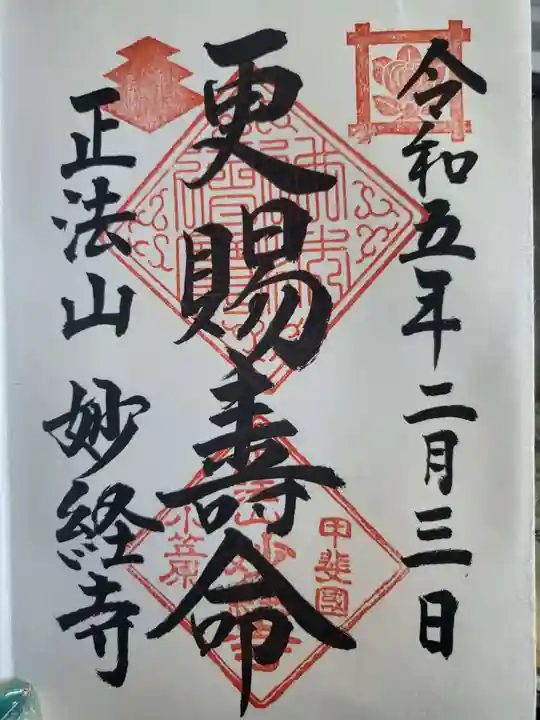 令和五年二月三日
更賜寿命
正法山 妙経寺
甲斐國
小笠原